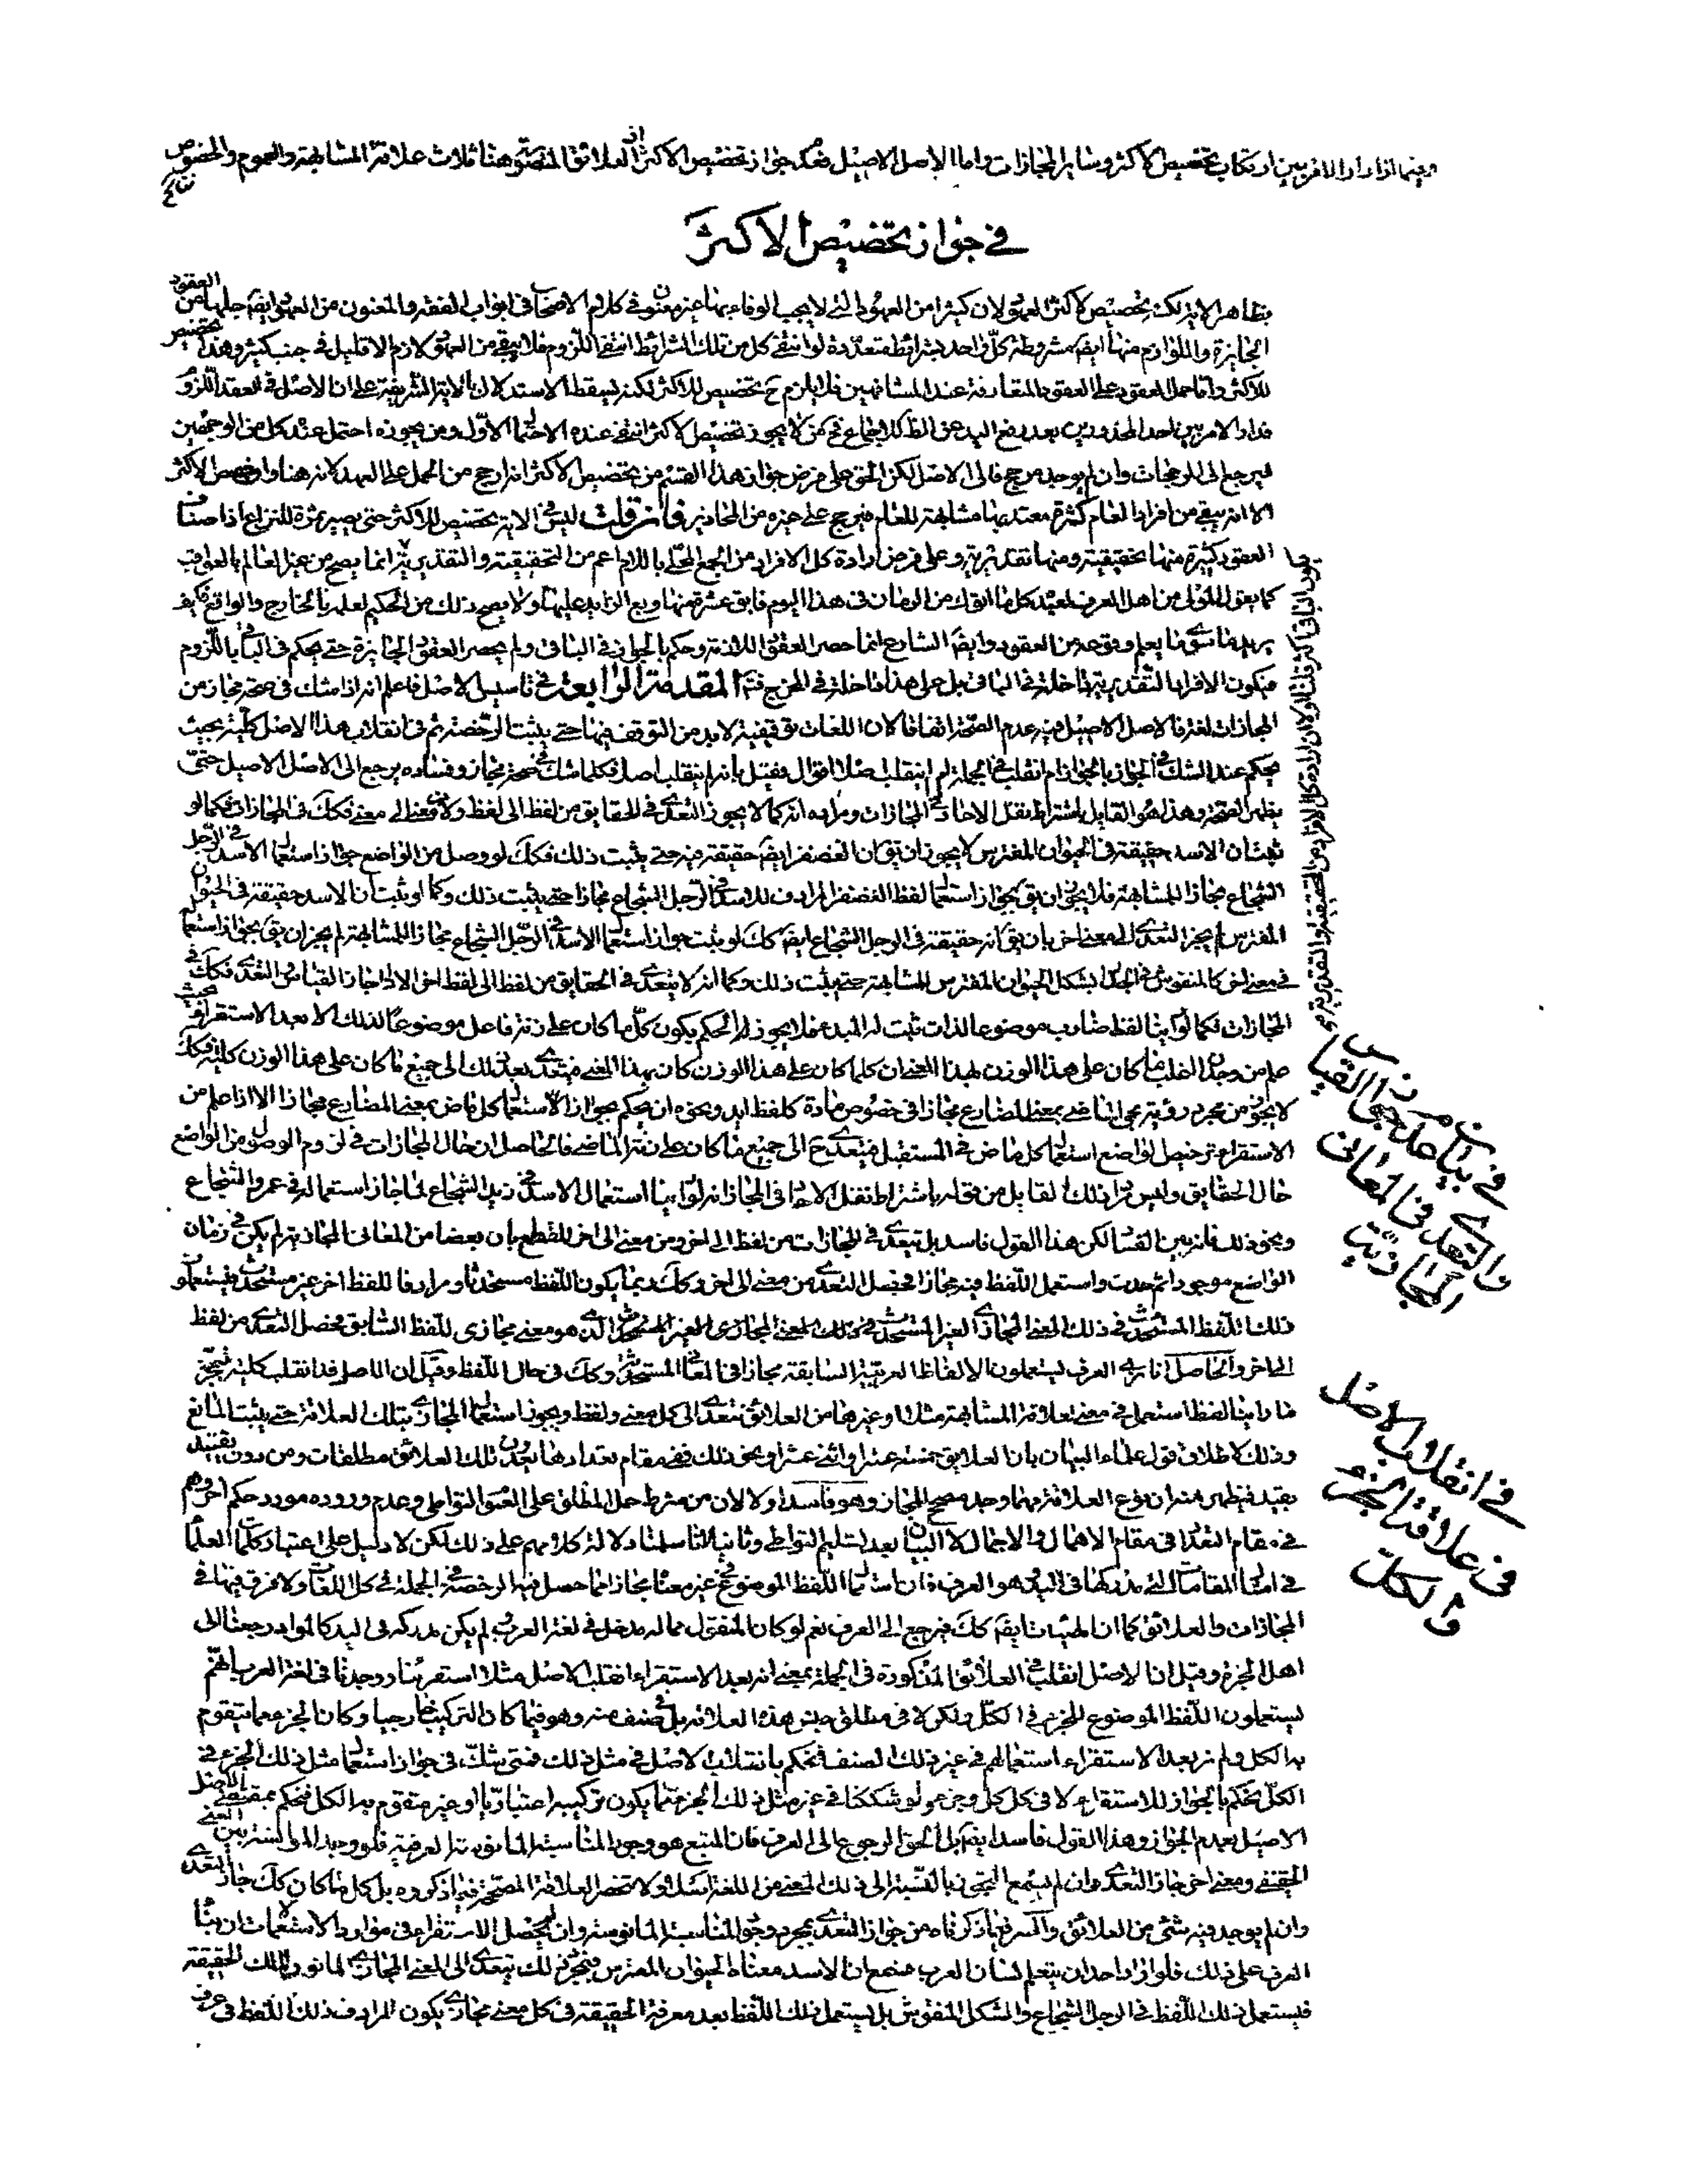 وفيما اذا دار الامر بين ارتكاب تخصيص الاكثر وساير المجازات واما الاصل الاصيل فعدم جواز تخصيص الاكثر اذ العلائق المتصورة هنا ثلاث علاقة المشابهة والعموم والخصوص
في جواز تخصيص الاكثر
بظاهر الاية لكن تخصيص الاكثر لان كثيرا من العهود التي لا يجب الوفاء بها غير معنون في كلام الاصحاب في ابواب الفقه والمعنون من العهود ايضا جلها من العقود
الجايزة واللوازم منها ايضا مشروطة كل واحد بشرائط متعددة لو انتفى كل من تلك الشرائط انتفى اللزوم فلا يبقى من العهود لازم الا قليل في جنب كثير وهذا تخصيص
للاكثر واما حمل العقود على العقود المتعارفة عند المشافهين فلا يلزم ح تخصيص للاكثر لكنه يسقط الاستدلال بالاية الشريفة على ان الاصل في العقد اللزوم
فدار الامر بين احد المحذورين بعد رفع اليد عن الظ للاجماع فمن لا يجوز تخصيص الاكثر انتفى عنده الاحتمال الاول ومن يجوزه احتمل عنده كل من الوجهين
فيرجع الى المرجحات وان لم يوجد مرجح فالى الاصل لكن الحق على فرض جواز هذا القسم من تخصيص الاكثر انه ارجح من الحمل على العهد لانه هنا وان خصص الاكثر
الا انه يبقى من افراد العام كثرة معتد بها مشابهة للعام فيرجح على غيره من المحاذير فان قلت ليس في الاية تخصيص للاكثر حتى يصير ثمرة للنزاع اذ اصناف
العقود كثيرة منها تحقيقية ومنها تقديرية وعلى فرض ارادة كل الافراد من الجمع المحلى باللام اعم من التحقيقية والتقديرية انما يصح من غير العالم بالعواقب
كما يقول المولى من اهل العرف لعبده كل ما اتوك من الرمان في هذا اليوم فابق عشرة منها وبع الزايد عليها ولا يصح ذلك من الحكيم لعلمه بالخارج والواقع فكيف
يريد ما سوى ما يعلم وقوعه من العقود وايضا الشارع انما حصر العقود اللازمة وحكم بالجواز في الباقي ولم يحصر العقود الجايزة حتى يحكم في الباقي باللزوم
فيكون الافراد التقديرية داخلة في الباقي بل على هذا داخلة في المخرج فت المقدمة الرابعة في تاسيس الاصل فاعلم انه اذا شك في صحة مجاز من
المجازات لغة فالاصل الاصيل فيه عدم الصحة اتفاقا لان اللغات توقيفية لا بد من التوقف فيها حتى يثبت الرخصة ثم في انقلاب هذا الاصل كلية بحيث
يحكم عند الشك في الجواز بالجواز ام انقلب في الجملة ام لم ينقلب اصلا اقوال وقيل بانه لم ينقلب اصلا فكلما شك في صحة مجاز وفساده يرجع الى الاصل الاصيل حتى
يظهر الصحة وهذا هو القايل باشتراط نقل الاحاد في المجازات ومراده انه كما لا يجوز التعدي في الحقايق من لفظ الى لفظ ولا معنى الى معنى فكك في المجازات فكما لو
ثبت ان الاسد حقيقة في الحيوان المفترس لا يجوز ان يق ان الغضنفر ايضا حقيقة فيه حتى يثبت ذلك فكك لو وصل من الواضع جواز استعمال الاسد في الرجل
الشجاع مجازا للمشابهة فلا يجوز ان يق بجواز استعمال لفظ الغضنفر المرادف للاسد في الرجل الشجاع مجازا حتى يثبت ذلك وكما لو ثبت ان الاسد حقيقة في الحيوان
المفترس لم يجز التعدي الى معنى اخر بان يق انه حقيقة في الرجل الشجاع ايضا كك لو ثبت جواز استعمال الاسد في الرجل الشجاع مجازا للمشابهة لم يجز ان يق بجواز استعماله
في معنى اخر كالمنقوش في الجدار بشكل الحيوان المفترس للمشابهة حتى يثبت ذلك وكما انه لا يتعدى في الحقايق من لفظ الى لفظ اخر الا اذا جاز القياس والتعدي فكك في
المجازات فكما لو راينا لفظ ضارب موضوعا لذات ثبت له المبدء فلا يجوز لنا الحكم بكون كل ما كان على زنة فاعل موضوعا لذلك الا بعد الاستقراء بحيث
علم من وجدان اغلب ما كان على هذا الوزن لهذا المعنى ان كلما كان على هذا الوزن كان بهذا المعنى فيتعدى بعد ذلك الى جميع ما كان على هذا الوزن كلية فكك
لا يجوز من مجرد رؤية مجيء الماضي بمعنى المضارع مجازا في خصوص مادة كلفظ ايد ونحوه ان يحكم بجواز استعمال كل ماض بمعنى المضارع مجازا الا اذا علم من
الاستقراء ترخيص الواضع استعمال كل ماض في المستقبل فيتعدى ح الى جميع ما كان على زنة الماضي فالحاصل ان حال المجازات في لزوم الوصول من الواضع
حال الحقايق وليس مراد ذلك القايل من قوله باشتراط نقل الاحاد في المجاز انه لو راينا استعمال الاسد في زيد الشجاع لما جاز استعماله في عمرو الشجاع
ونحو ذلك فانه بين الفساد لكن هذا القول فاسد بل يتعدى في المجازات من لفظ الى اخر ومن معنى الى اخر للقطع بان بعضا من المعاني المجازية لم يكن في زمان
الواضع موجودا ثم حدث واستعمل اللفظ فيه مجازا فحصل التعدي من معنى الى اخر وكك ربما يكون اللفظ مستحدثا ومرادفا للفظ اخر غير مستحدث فيستعملون
ذلك اللفظ المستحدث في ذلك المعنى المجازي الغير المستحدث الذي هو معنى مجازي للفظ السابق فحصل التعدي من لفظ
الى اخر والحاصل انا نرى العرف يستعملون الالفاظ العربية السابقة مجازا في المعاني المستحدثة وكك في حال اللفظ وقيل ان الاصل قد انقلب كلية فبمجرد
ما راينا لفظا استعمل في معنى بعلاقة المشابهة مثلا او غيرها من العلائق نتعدى الى كل معنى ولفظ ويجوز استعمال المجازي بتلك العلاقة حتى يثبت المانع
وذلك لاطلاق قول علماء البيان بان العلايق خمسة عشر او اثنى عشر او نحو ذلك ففي مقام تعدادها يعدون تلك العلائق مطلقات ومن دون تقييد
بقيد فيظهر منه ان نوع العلاقة مهما وجد مصحح للمجاز وهو فاسد اولا لان من شرط حمل المطلق على العموم التواطي وعدم وروده مورد حكم اخر وهم
في مقام التعداد في مقام الاهمال والاجمال لا البيان بعد تسليم التواطي وثانيا انا سلمنا دلالة كلامهم على ذلك لكن لا دليل على اعتبار كلمات العلماء
في امثال المقامات التي مدركها في اليد هو العرف فان استعمال اللفظ الموضوع في غير معناه مجازا مما حصل فيه الرخصة في الجملة في كل اللغات ولا فرق بينها في
المجازات والعلائق كما ان الهيئات ايضا كك فيرجع الى العرف نعم لو كان المنقول مما له مدخل في لغة العرب لم يكن مدركه في اليد كالمواد رجعنا الى
اهل الخبرة وقيل ان الاصل انقلب في العلائق المذكورة في الجملة بمعنى انه بعد الاستقراء انقلب الاصل مثلا استقرئنا ووجدنا في لغة العرب انهم
يستعملون اللفظ الموضوع للجزء في الكل ولكن لا في مطلق جنس هذه العلاقة بل في صنف منه وهو فيما كان التركيب خارجيا وكان الجزء مما يتقوم
به الكل ولم نر بعد الاستقراء استعمالهم في غير ذلك الصنف فنحكم بانقلاب الاصل في مثل ذلك فمتى نشك في جواز استعمال مثل ذلك الجزء في
الكل نحكم بالجواز للاستقراء لا في كل كل وجزء ولو شككنا في غير مثل ذلك الجزء مما يكون تركيبه اعتباريا او غير متقوم به الكل فنحكم بمقتضى الاصل
الاصيل بعدم الجواز وهذا القول فاسد ايضا بل الحق الرجوع الى العرف فان المتبع هو وجود المناسبة المانوسة العرفية فلو وجد الموانسة بين المعنى
الحقيقي ومعنى اخر جاز التعدي وان لم يسمع التجوز بالنسبة الى ذلك المعنى من اللغة اصلا ولا تنحصر العلاقة المصححة فيما ذكروه بل كل ما كان كك جاز التعدي
وان لم يوجد فيه شئ من العلائق والسر فيما ذكرناه من جواز التعدي بمجرد وجود المناسبة المانوسة وان لم يحصل الاستقراء في موارد الاستعمالات ان بناء
العرف على ذلك فلو اراد احد ان يتعلم لسان العرب فسمع ان الاسد معناه الحيوان المفترس فبمجرد ذلك يتعدى الى المعنى المجازي المانوس لتلك الحقيقة
فيستعمل ذلك اللفظ في الرجل الشجاع والشكل المنقوش بل يستعمل ذلك اللفظ بعد معرفة الحقيقة في كل معنى مجازي يكون المرادف ذلك اللفظ في عرف
في بيان عدم جواز القياس
والتعدي في المعاني
المجازية
في انقلاب الاصل
في علاقة الجزء
والكل